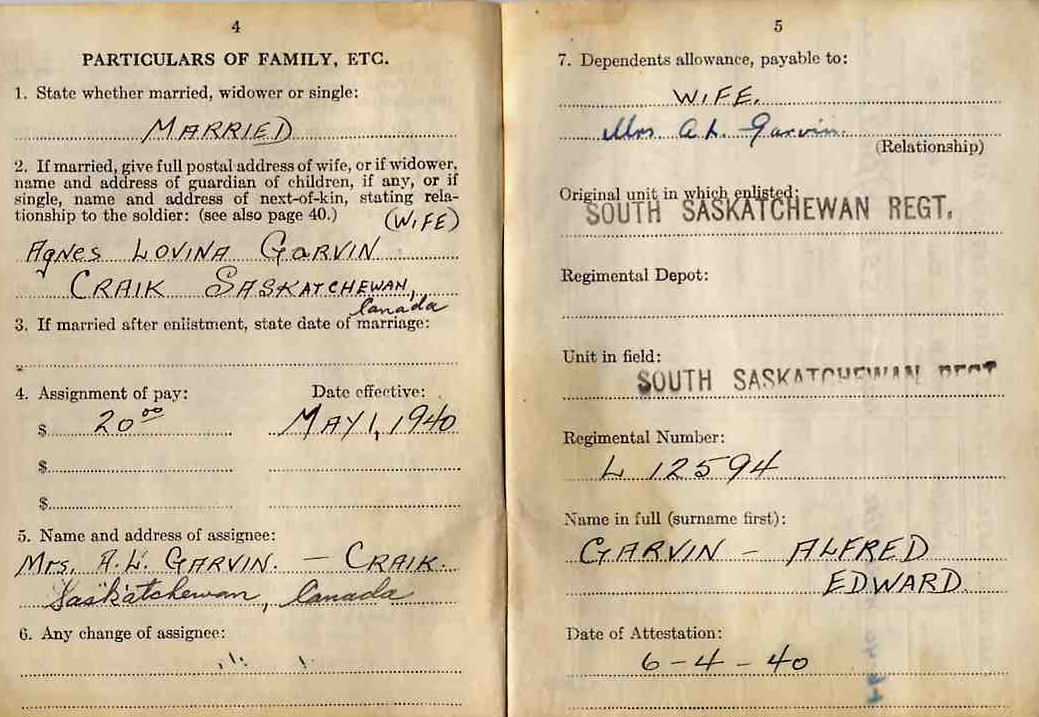 4
PARTICULARS OF FAMILY, ETC.
1. State whether married, widower or single:
MARRIED
2. If married, give full postal address of wife, or if widower,
name and address of guardian of children, if any, or if
single, name and address of next-of-kin, stating rela-
tionship to the soldier: (see also page 40.) (WIFE)
Agnes LOVINA GARVIN
CRAIK SASKATCHEWAN,
Canada
3. If married after enlistment, state date of marriage:
4. Assignment of pay: Date effective:
$ 20⁰⁰ MAY 1, 1940
$
$
5. Name and address of assignee:
Mrs. A. L. GARVIN. — CRAIK.
Saskatchewan, Canada
6. Any change of assignee:
5
7. Dependents allowance, payable to:
WIFE.
Mrs A L. Garvin.
(Relationship)
Original unit in which enlisted:
SOUTH SASKATCHEWAN REGT.
Regimental Depot:
Unit in field:
SOUTH SASKATCHEWAN REGT
Regimental Number:
L 12594
Name in full (surname first):
GARVIN - ALFRED
EDWARD
Date of Attestation:
6-4-40